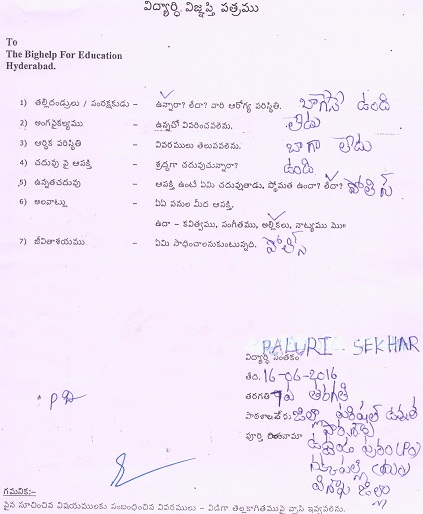 విద్యార్ధి విజ్ఞప్తి పత్రము
To
The Bighelp For Education
Hyderabad.
1) తల్లిదండ్రులు / సంరక్షకుడు – ఉన్నారా? లేదా? వారి ఆరోగ్య పరిస్థితి. బాగానే ఉంది
2) అంగవైకల్యము – ఉన్నచో వివరించవలెను. లేదు
3) ఆర్థిక పరిస్థితి – వివరములు తెలుపవలెను. బాగా లేదు
4) చదువు పై ఆసక్తి – శ్రద్ధగా చదువుచున్నారా? ఉంది
5) ఉన్నతచదువు – ఆసక్తి ఉంటే ఏమి చదువుతాడు, స్తోమత ఉందా? లేదా? పోలీస్
6) అలవాట్లు – ఏఏ పనుల మీద ఆసక్తి.
ఉదా – కవిత్వము, సంగీతము, అల్లికలు, నాట్యము మొ॥
7) జీవితాశయము – ఏమి సాధించాలనుకుంటున్నది. పోలీస్
PALURI SEKHAR
విద్యార్ధి సంతకం
తేది. 16-06-2016
తరగతి 9వ తరగతి
పాఠశాల జిల్లా పరిషత్ ఉన్నత
పాఠశాల
పూర్తి చిరునామా
నక్కపల్లి
విశాఖ జిల్లా
గమనిక:-
పైన సూచించిన విషయములకు సంబంధించిన వివరములు – విడిగా తెల్లకాగితముపై వ్రాసి ఇవ్వవలెను.